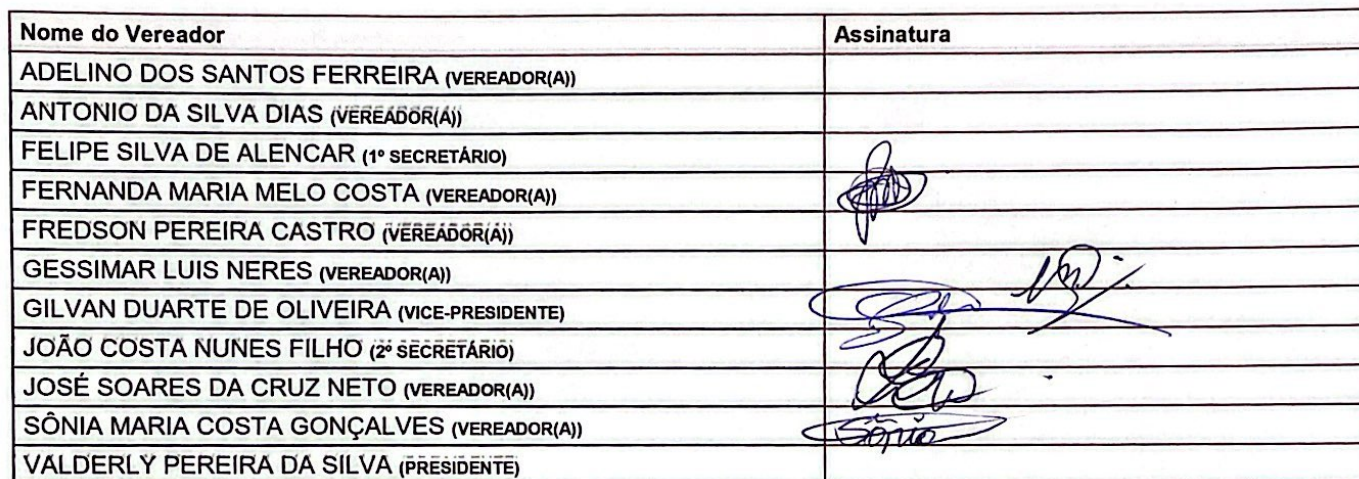 Nome do Vereador Assinatura
ADELINO DOS SANTOS FERREIRA (VEREADOR(A))
ANTONIO DA SILVA DIAS (VEREADOR(A))
FELIPE SILVA DE ALENCAR (1º SECRETÁRIO)
FERNANDA MARIA MELO COSTA (VEREADOR(A))
FREDSON PEREIRA CASTRO (VEREADOR(A))
GESSIMAR LUIS NERES (VEREADOR(A))
GILVAN DUARTE DE OLIVEIRA (VICE-PRESIDENTE)
JOÃO COSTA NUNES FILHO (2º SECRETÁRIO)
JOSÉ SOARES DA CRUZ NETO (VEREADOR(A))
SÔNIA MARIA COSTA GONÇALVES (VEREADOR(A)) Sônia
VALDERLY PEREIRA DA SILVA (PRESIDENTE)